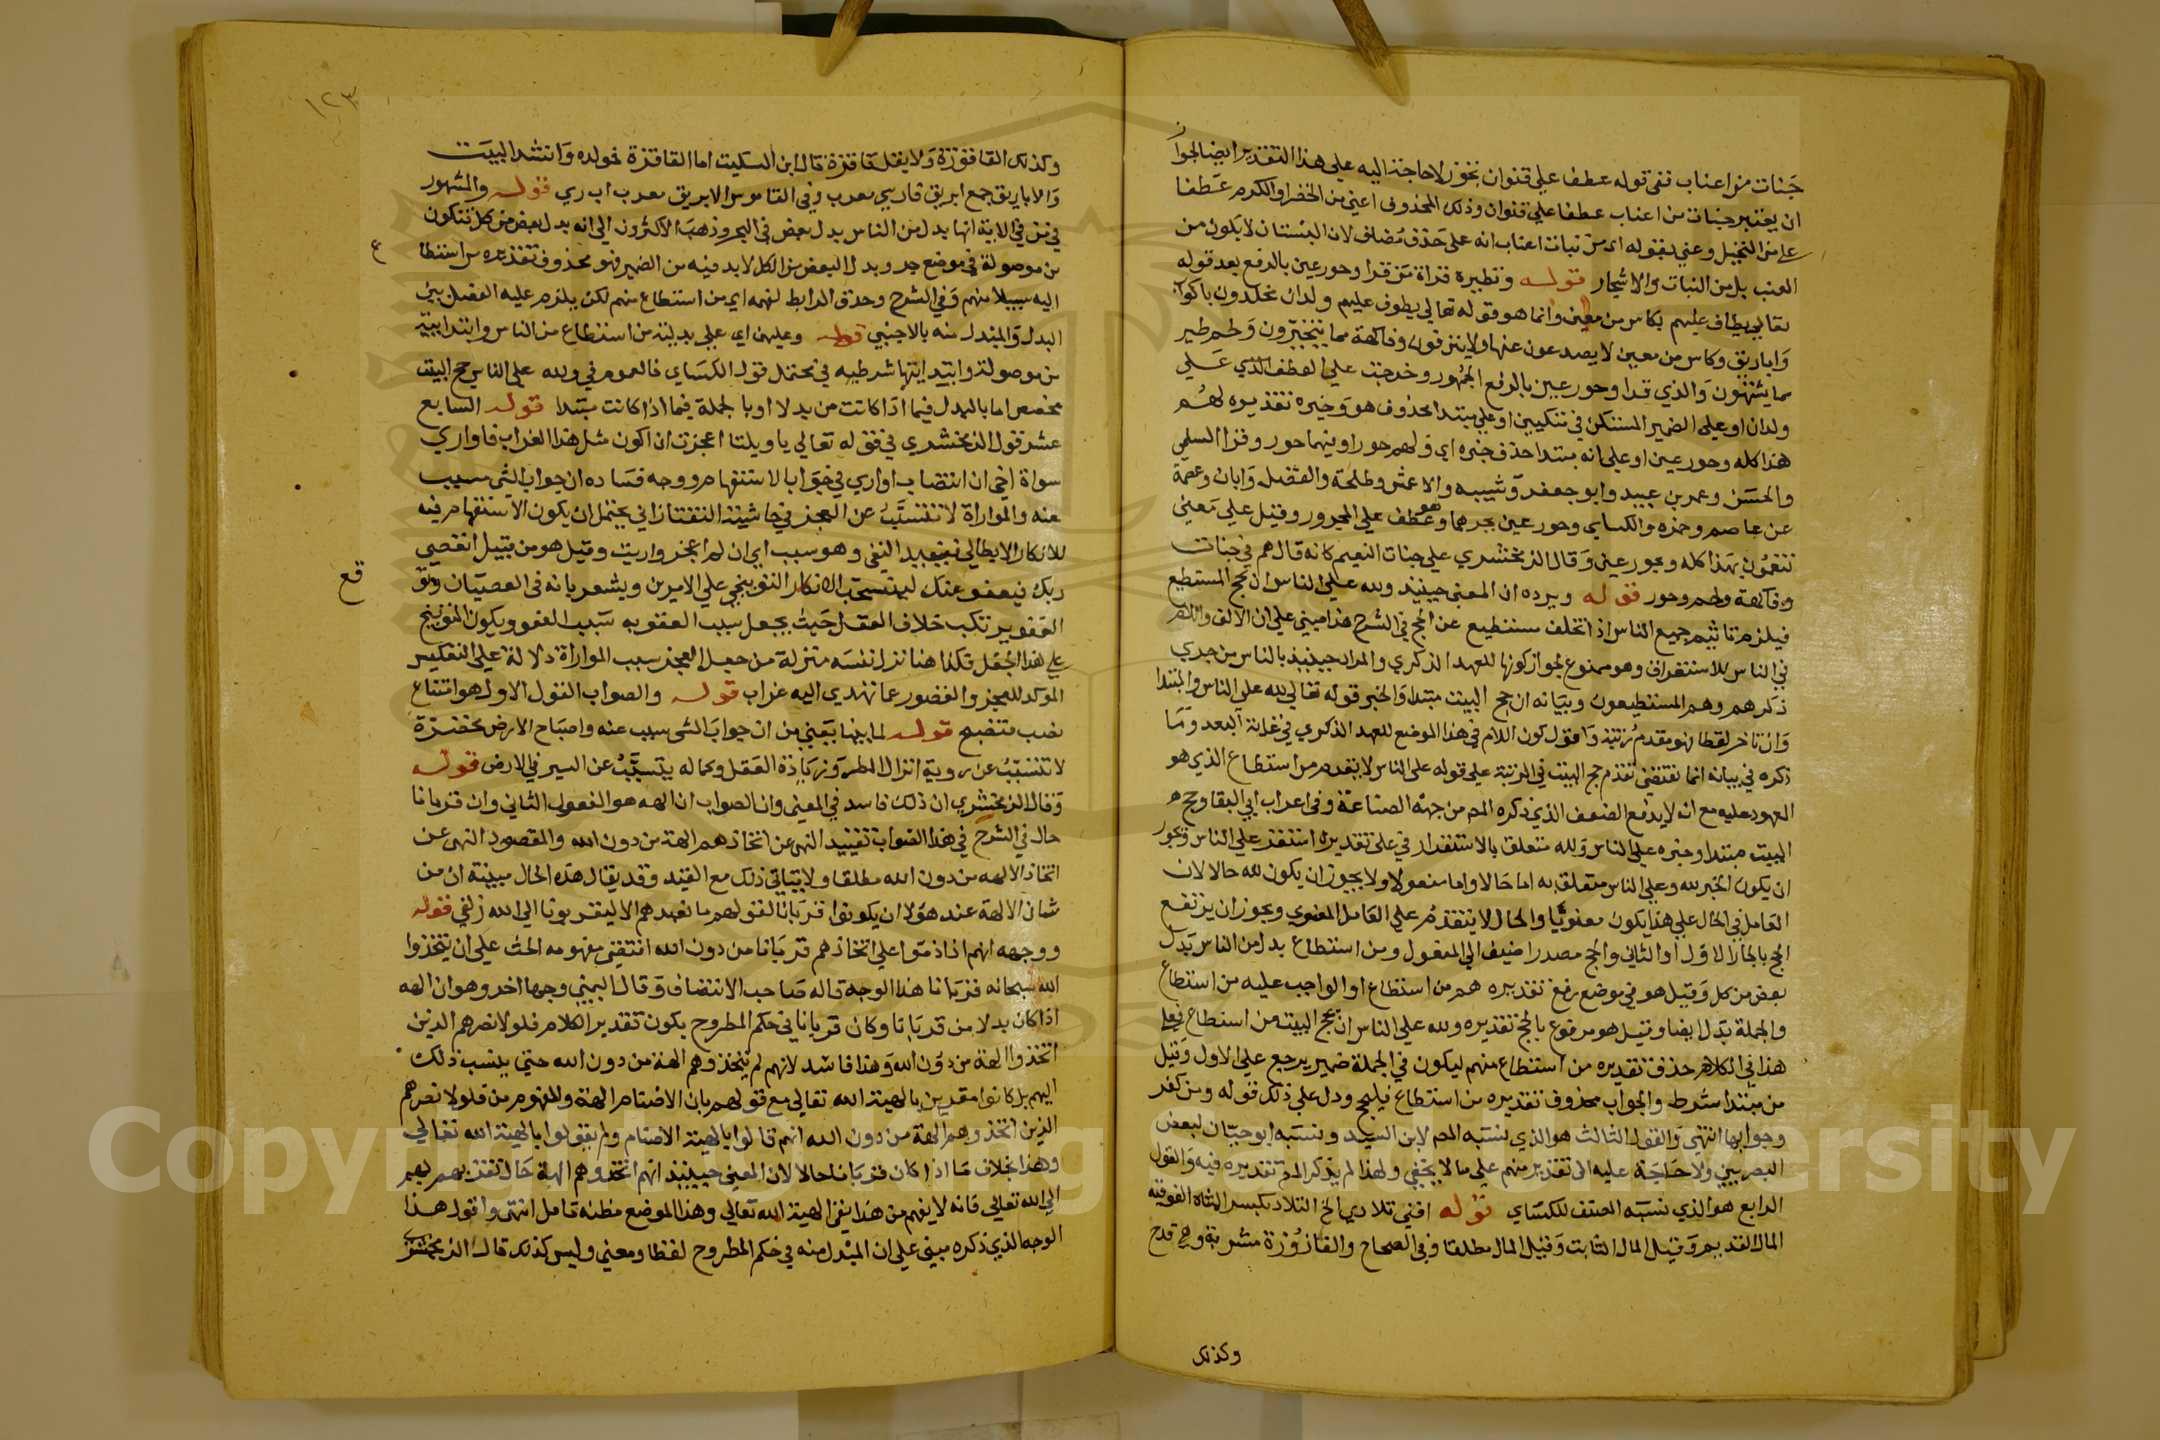 جنات من اعناب ففي قوله عطفا على قنوان تجوز لا حاجة اليه على هذا التقدير ايضا لجواز
ان يعتبر جنات من اعناب عطفا على قنوان وذلك المحذوف اعني من الخضر او الكرم عطفا
على من النخيل وعني بقوله اي من نبات اعناب انه على حذف مضاف لان البستان لا يكون من
العنب بل من النبات والاشجار قوله ونظيره قراة من قرا وحور عين بالرفع بعد قوله
تعالى يطاف عليهم بكاس من معين وانما هو قوله تعالى يطوف عليهم ولدان مخلدون باكواب
واباريق وكاس من معين لا يصدعون عنها ولا ينزفون وفاكهة مما يتخيرون ولحم طير
مما يشتهون والذي قرا وحور عين بالرفع الجمهور وخرجت على العطف الذي على
ولدان او على الضمير المستكن في متكيين او على مبتدا محذوف هو وخبره تقديره لهم
هذا كله وحور عين او على انه مبتدا حذف خبره اي ولهم حور او فيهما حور وقرا السلمي
والحسن وعمر بن عبيد وابو جعفر وشيبه والاعمش وطلحة والمفضل وابان وعصمة
عن عاصم وحمزه والكساي وحور عين بجرهما وهو عطف على المجرور وقيل على معنى
تنعمون بهذا كله وبحور عين وقال الزمخشري على جنات النعيم كانه قال هم في جنات
وفاكهة ولحم وحور قوله ويرده ان المعنى حينيذ ولله على الناس ان يحج المستطيع
فيلزم تاثيم جميع الناس اذا تخلف مستطيع عن الحج في الشرح هذا مبني على ان الالف واللام
في الناس للاستغراق وهو ممنوع لجواز كونها للعهد الذكري والمراد حينيذ بالناس من جري
ذكرهم وهم المستطيعون وبيانه ان حج البيت مبتدا والخبر قوله تعالى لله على الناس والمبتدا
وان تاخر لفظا فهو مقدم رتبة واقول كون اللام في هذا الموضع للعهد الذكري في غاية البعد وما
ذكره في بيانه انما يقتضي تقدم حج البيت في الرتبة على قوله على الناس لا تقدم من استطاع الذي هو
المعهود عليه مع انه لا يدفع الضعف الذي ذكره المص من جهة الصناعة وفي اعراب ابي البقا وحج
البيت مبتدا وخبره على الناس ولله متعلق بالاستقرار في على تقديره استقر على الناس ويجوز
ان يكون الخبر لله وعلى الناس متعلق به اما حالا واما مفعولا ولا يجوز ان يكون لله حالا لان
العامل في الحال على هذا يكون معنويا والحال لا يتقدم على العامل المعنوي ويجوز ان يرتفع
الحج بالجار الاول او الثاني والحج مصدر اضيف الى المفعول ومن استطاع بدل من الناس بدل
بعض من كل وقيل هو في موضع رفع تقديره هم من استطاع او الواجب عليه من استطاع
والجملة بدل ايضا وقيل هو مرفوع بالحج تقديره ولله على الناس ان يحج البيت من استطاع فعلى
هذا في الكلام حذف تقديره من استطاع منهم ليكون في الجملة ضمير يرجع على الاول وقيل
من مبتدا شرط والجواب محذوف تقديره من استطاع فليحج ودل على ذلك قوله ومن كفر
وجوابها انتهى والقول الثالث هو الذي نسبه المص لابن السيد ونسبه ابو حيان لبعض
البصريين ولا حاجة عليه الى تقدير منهم على ما لا يخفى ولهذا لم يذكر المص تقديره فيه والقول
الرابع هو الذي نسبه المصنف للكساي قوله افنى تلادي الخ التلاد بكسر المثناة الفوقية
المال القديم وقيل المال الثابت وقيل المال مطلقا وفي الصحاح والقازوزة مشربة وهي قدح
وكذلك
١٢٣
وكذلك القاقوزة ولا يقل قاقزة قال ابن السكيت اما القاقزة فولده وانشد البيت
والاباريق جمع ابريق فارسي معرب وفي القاموس الابريق معرب اب ري قوله والمشهور
في من في الاية انها بدل من الناس بدل بعض في البحر وذهب الاكثرون الى انه بدل بعض من كل فتكون
من موصولة في موضع جر وبدل البعض من الكل لا بد فيه من الضمير فهو محذوف تقديره من استطاع
اليه سبيلا منهم وفي الشرح وحذف الرابط لفهمه اي من استطاع منهم لكن يلزم عليه الفصل بين
البدل والمبدل منه بالاجنبي قوله وعليهن اي على بدلية من استطاع من الناس وابتداييه
من موصولة وابتدايتها شرطيه في محتمل قول الكساي فالعموم في ولله على الناس حج البيت
مخصص اما بالبدل فيما اذا كانت من بدلا او بالجملة فيما اذا كانت مبتدا قوله السابع
عشر قول الزمخشري في قوله تعالى يا ويلتا اعجزت ان اكون مثل هذا الغراب فاواري
سواة اخي ان انتصاب اواري في جواب الاستفهام ووجه فساده ان جواب الشي مسبب
عنه والمواراة لا تتسبب عن العجز في حاشية التفتازاني يحتمل ان يكون الاستفهام فيه
للانكار الابطالي فيفيد النفي وهو سبب اي ان لم اعجز واريت وقيل هو من قبيل اتعصي
ربك فيعفو عنك لينسحب الانكار التوبيخي على الامرين ويشعر بانه في العصيان وتوقع
العفو يرتكب خلاف العقل حيث يجعل سبب العقوبه سبب العفو ويكون التوبيخ
على هذا الجعل فكذا هنا نزل نفسه منزلة من جعل العجز سبب المواراة دلالة على التفكير
الموكد للعجز والقصور عما تهدي اليه غراب قوله والصواب القول الاول هو امتناع
نصب فتصبح قوله لما بينا يعني من ان جواب الشي مسبب عنه واصباح الارض مخضرة
لا تتسبب عن روية انزال المطر وزيادة العقل وكماله يتسبب عن السير في الارض قوله
وقال الزمخشري ان ذلك فاسد في المعنى وان الصواب ان الهه هو المفعول الثاني وان قربانا
حال في الشرح في هذا الصواب تقييد النهي عن اتخاذهم الهة من دون الله والمقصود النهي عن
اتخاذ الالهه من دون الله مطلقا ولا يتاتى ذلك مع القيد وقد يقال هذه الحال مبينة ان من
شان الالهة عند هولا ان يكونوا قربانا لقولهم ما نعبدهم الا ليقربونا الى الله زلفى قوله
ووجهه انهم اذا ذموا على اتخاذهم قربانا من دون الله اقتضى مفهومه الحث على ان يتخذوا
الله سبحانه قربانا هذا الوجه قاله صاحب الانتصاف وقال اليمني وجها اخر وهو ان الهه
اذا كان بدلا من قربانا وكان قربانا في حكم المطروح يكون تقدير الكلام فلولا نصرهم الذين
اتخذوا الهة من دون الله وهذا فاسد لانهم لم يتخذوهم الهة من دون الله حتى ينسب ذلك
اليهم بل كانوا مقرين بالهية الله تعالى مع قولهم بان الاصنام الهة والمفهوم من فلولا نصرهم
الذين اتخذوهم الهة من دون الله انهم قالوا بالهية الاصنام ولم يقولوا بالهية الله تعالى
وهذا بخلاف ما اذا كان قربانا حالا لان المعنى حينيذ انهم اتخذوهم الهة حال تقربهم بهم
الى الله تعالى فانه لا يفهم من هذا نفي الهية الله تعالى وهذا الموضع مظنة تامل انتهى واقول هذا
الوجه الذي ذكره مبني على ان المبدل منه في حكم المطروح لفظا ومعنى وليس كذلك قال الزمخشري
ع
قع
Copyright © King Saud University